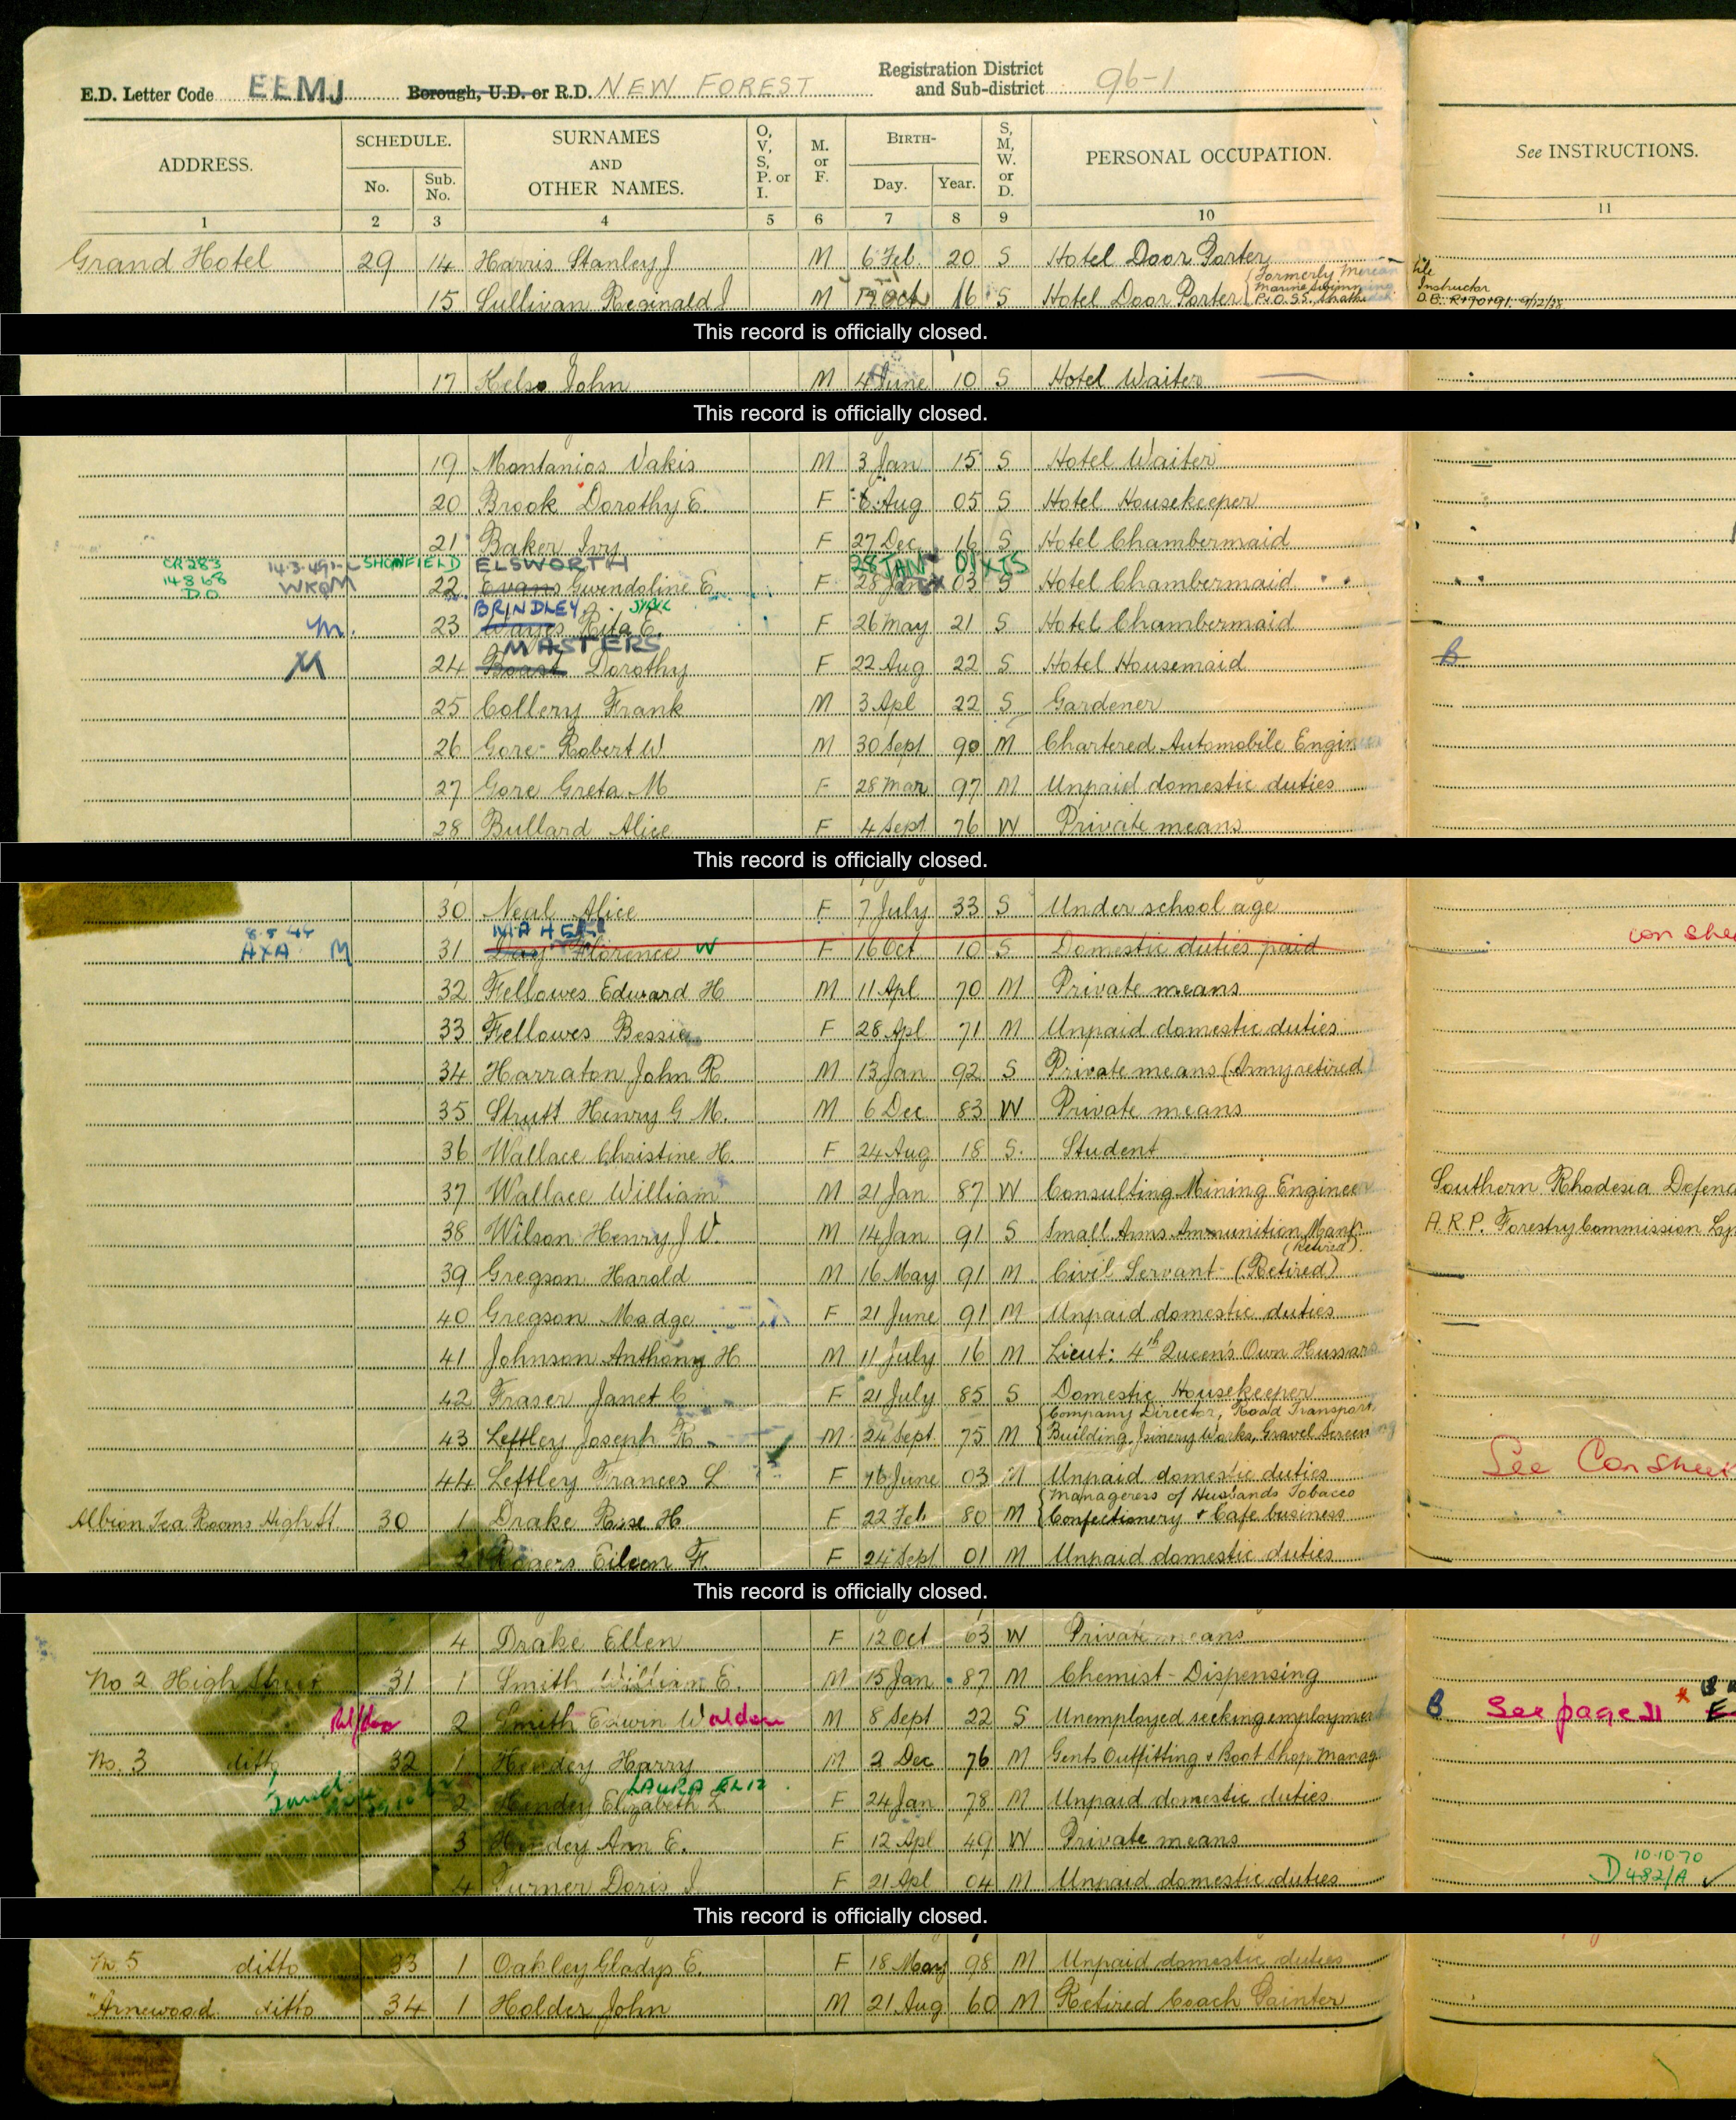 E.D. Letter Code EEMJ Borough, U.D. or R.D. NEW FOREST Registration District and Sub-district 96-1
ADDRESS. SCHEDULE. No. Sub. No. SURNAMES AND OTHER NAMES. O, V, S, P. or I. M. or F. BIRTH- Day. Year. S, M, W. or D. PERSONAL OCCUPATION. See INSTRUCTIONS.
1 2 3 4 5 6 7 8 9 10 11
Grand Hotel 29 14 Harris Stanley J M 6 Feb 20 S Hotel Door Porter
15 Sullivan Reginald J M Oct 16 S Hotel Door Porter Formerly Marine P.&O. S.S. Instructor
This record is officially closed.
17 Kelso John M 4 June 10 S Hotel Waiter
This record is officially closed.
19 Montanios Vakis M 3 Jan 15 S Hotel Waiter
20 Brook Dorothy E. F 6 Aug 05 S Hotel Housekeeper
21 Baker Ivy F 27 Dec 16 S Hotel Chambermaid
CR283 14.8.68 D.O 14.3.49 WKQM SHONFIELD ELSWORTH 28 JAN 01
22 Evans Gwendoline E. F 28 Jan 03 S Hotel Chambermaid
BRINDLEY
m. 23 Rita E. F 26 May 21 S Hotel Chambermaid
MASTERS
M 24 Dorothy F 22 Aug 22 S Hotel Housemaid B
25 Collery Frank M 3 Apl 22 S Gardener
26 Gore Robert W M 30 Sept 90 M Chartered Automobile Engin
27 Gore Greta M F 28 Mar 97 M Unpaid domestic duties
28 Bullard Alice F 4 Sept 76 W Private means
This record is officially closed.
30 Neal Alice F 7 July 33 S Under school age
8.5.44 AXA M MAHER
31 Day Florence W F 16 Oct 10 S Domestic duties paid
32 Fellowes Edward H M 11 Apl 70 M Private means
33 Fellowes Bessie F 28 Apl 71 M Unpaid domestic duties
34 Harraton John R M 13 Jan 92 S Private means (Army retired)
35 Strutt Henry G. M. M 6 Dec 83 W Private means
36 Wallace Christine H. F 24 Aug 18 S. Student
37 Wallace William M 21 Jan 87 W Consulting Mining Engineer Southern Rhodesia Defenc
38 Wilson Henry J V. M 14 Jan 91 S Small Arms Ammunition Manf. (Retired). A.R.P. Forestry Commission Ly
39 Gregson Harold M 16 May 91 M Civil Servant (Retired)
40 Gregson Madge F 21 June 91 M Unpaid domestic duties
41 Johnson Anthony H M 11 July 16 M Lieut: 4th Queen's Own Hussars
42 Fraser Janet C F 21 July 85 S Domestic Housekeeper
43 Leftley Joseph R M 24 Sept 75 M Company Director, Road Transport, Building, Joinery Works, Gravel Screening
44 Leftley Frances L F 16 June 03 M Unpaid domestic duties See Con sheet
Albion Tea Rooms High St. 30 1 Drake Rose H F 22 Feb 80 M Manageress of Husbands Tobacco Confectionery & Cafe business
2 Rogers Eileen F. F 24 Sept 01 M Unpaid domestic duties
This record is officially closed.
4 Drake Ellen F 12 Oct 63 W Private means
No 2 High Street 31 1 Smith William E. M 15 Jan 87 M Chemist - Dispensing
2 Smith Edwin Walden M 8 Sept 22 S Unemployed seeking employmen B See page 21
No. 3 ditto 32 1 Hendey Harry M 2 Dec 76 M Gents Outfitting & Boot Shop Manag
LAURA ELIZ
2 Hendey Elizabeth L F 24 Jan 78 M Unpaid domestic duties
3 Hendey Ann E. F 12 Apl 49 W Private means
4 Turner Doris J F 21 Apl 04 M Unpaid domestic duties 10.10.70 D 482/A
This record is officially closed.
No 5 ditto 33 1 Oakley Gladys E. F 18 May 98 M Unpaid domestic duties
"Arnewood ditto 34 1 Holder John M 21 Aug 60 M Retired Coach Painter